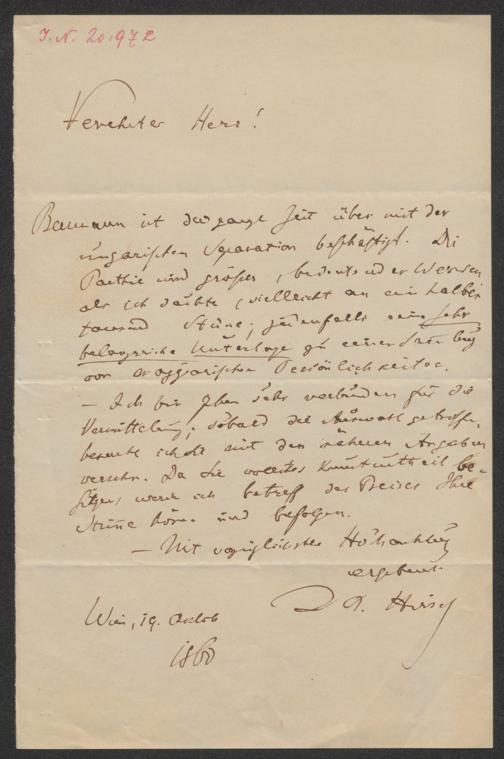 J. N. 20.972
Verehrter Herr!
Baumann ist die ganze Zeit über mit der
ungarischen Separation beschäftigt. Die
Parthie wird größer, bedeutender werden
als ich dachte, vielleicht an ein halbes
tausend Stüke; jedenfalls eine sehr
Unterlage zu einer
von magyarischen Persönlichkeiten.
— Ich bin Ihnen sehr verbunden für die
Vermittelung; sobald die Auswahl getroffen,
ich sie mit den näheren Angaben
versehen. Da Sie Kunsturtheil be-
sitzen, werde ich betreff des Preises Ihre
Stimme hören und befolgen.
— Mit vorzüglichster Hochachtung
ergebenst
Dr. Hirsch
Wien, 19. Oktob
1860